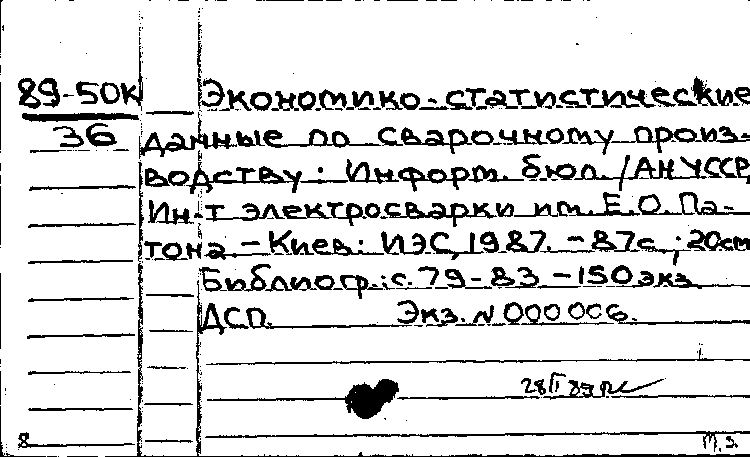 89-50К Экономико-статистические
36 данные по сварочному произ-
водству: Информ. бюл. /АН УССР,
Ин-т электросварки им. Е.О. Па-
тона. - Киев: ИЭС, 1987. - 87с.; 20см
Библиогр.: с. 79-83 - 150 экз.
ДСП. Экз. N 000006.
28/II 89
8 М.З.